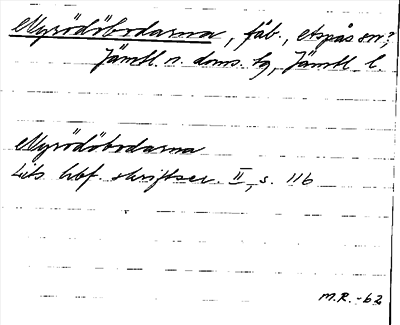 Myrödöbodarna, fäb., Aspås sn?,
Jämtl. n. doms. tg, Jämtl. l.
Myrödöbodarna
Lits hbf. skriftser. II, s. 116
M.R. -62